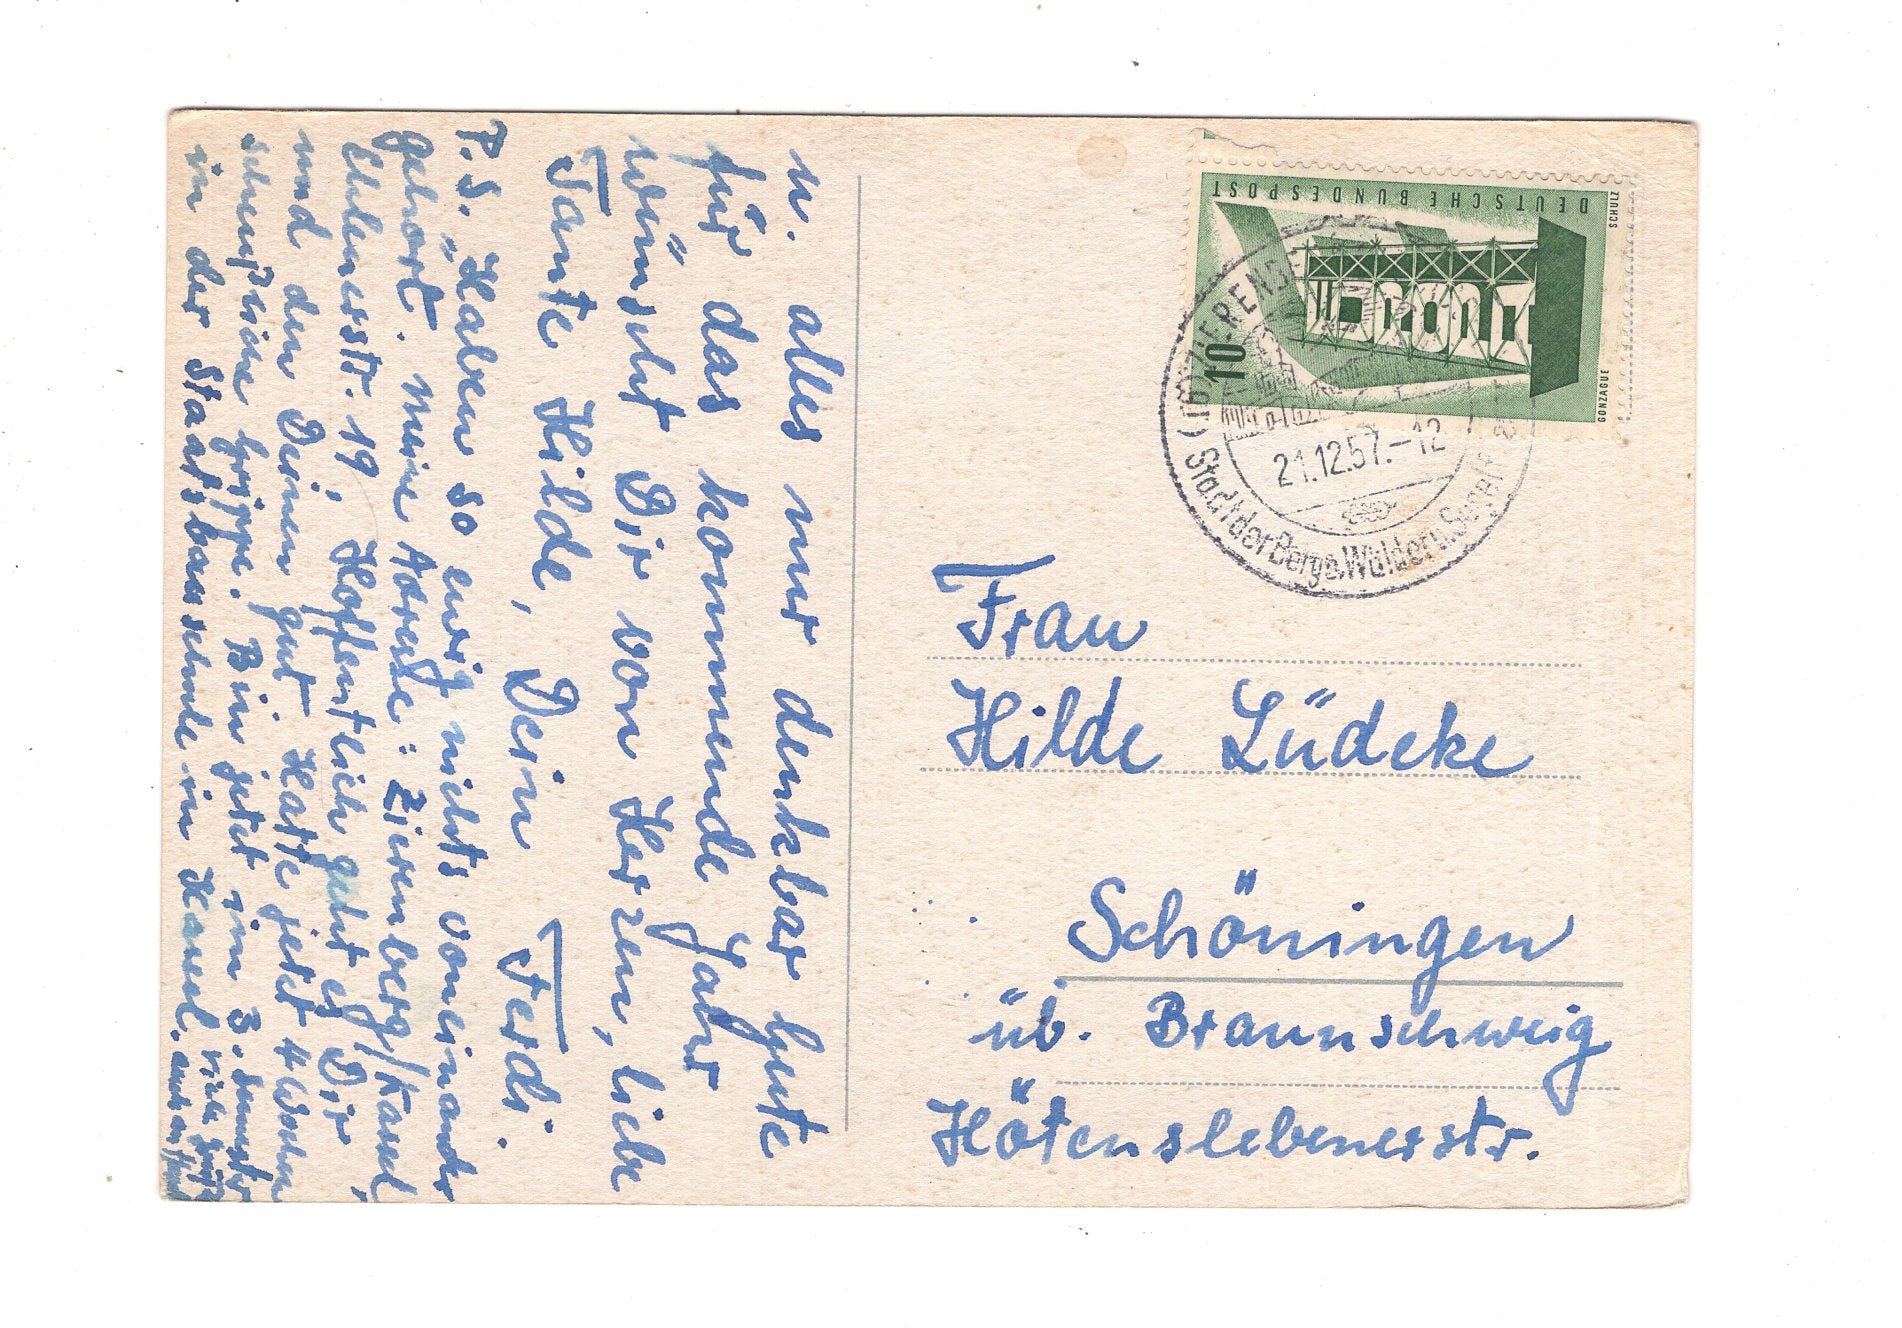 u. alles nur denkbar Gute
für das kommende Jahr
wünscht Dir von Herzen, liebe
Tante Hilde, Dein Ferdi.
P.S. Haben so ewig nichts voneinander
gehört. Meine Adresse: Zierenberg/Kassel,
19, Hoffentlich geht es Dir
und den Deinen gut. Hatte jetzt 4 Wochen
scheußliche Grippe. Bin jetzt im 3. Semester
in der Staatsbauschule in Kassel.
viele Grüße
DEUTSCHE BUNDESPOST
SCHULZ
10
GONZAGUE
(16) ZIERENBERG
21.12.57.-12
Stadt der Berge, Wälder u.
Frau
Hilde Lüdeke
Schöningen
üb. Braunschweig
Hötenslebenerstr.